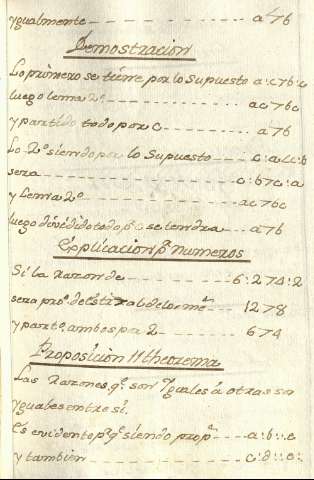 ygualmente - - - - - - a 7 b
Demostracion
Lo primero se tiene por lo supuesto a:c 7 b:c
luego lema 2º - - - - - - ac 7 bc
y partido todo por c - - - - - - a 7 b
Lo 2º siendo por lo Supuesto - - - - c:a c:b
sera - - - - - - c:b 7 c:a
y Lema 2º - - - - - - ac 7 bc
luego dividido todo pr c se tendra - - - a 7 b
Explicacion pr numeros
Si la razon de - - - - - - 6:2 7 4:2
sera proº. de extr al de los meº - - - 12 7 8
y partº. ambos por 2 - - - - - - 6 7 4
Proposicion 11 theorema
Las Razones, qe. son Yguales á otras son
yguales entre si.
Es evidente pr. qe. siendo propn - - - a:b::e
y tambien - - - - - - c:d::e: